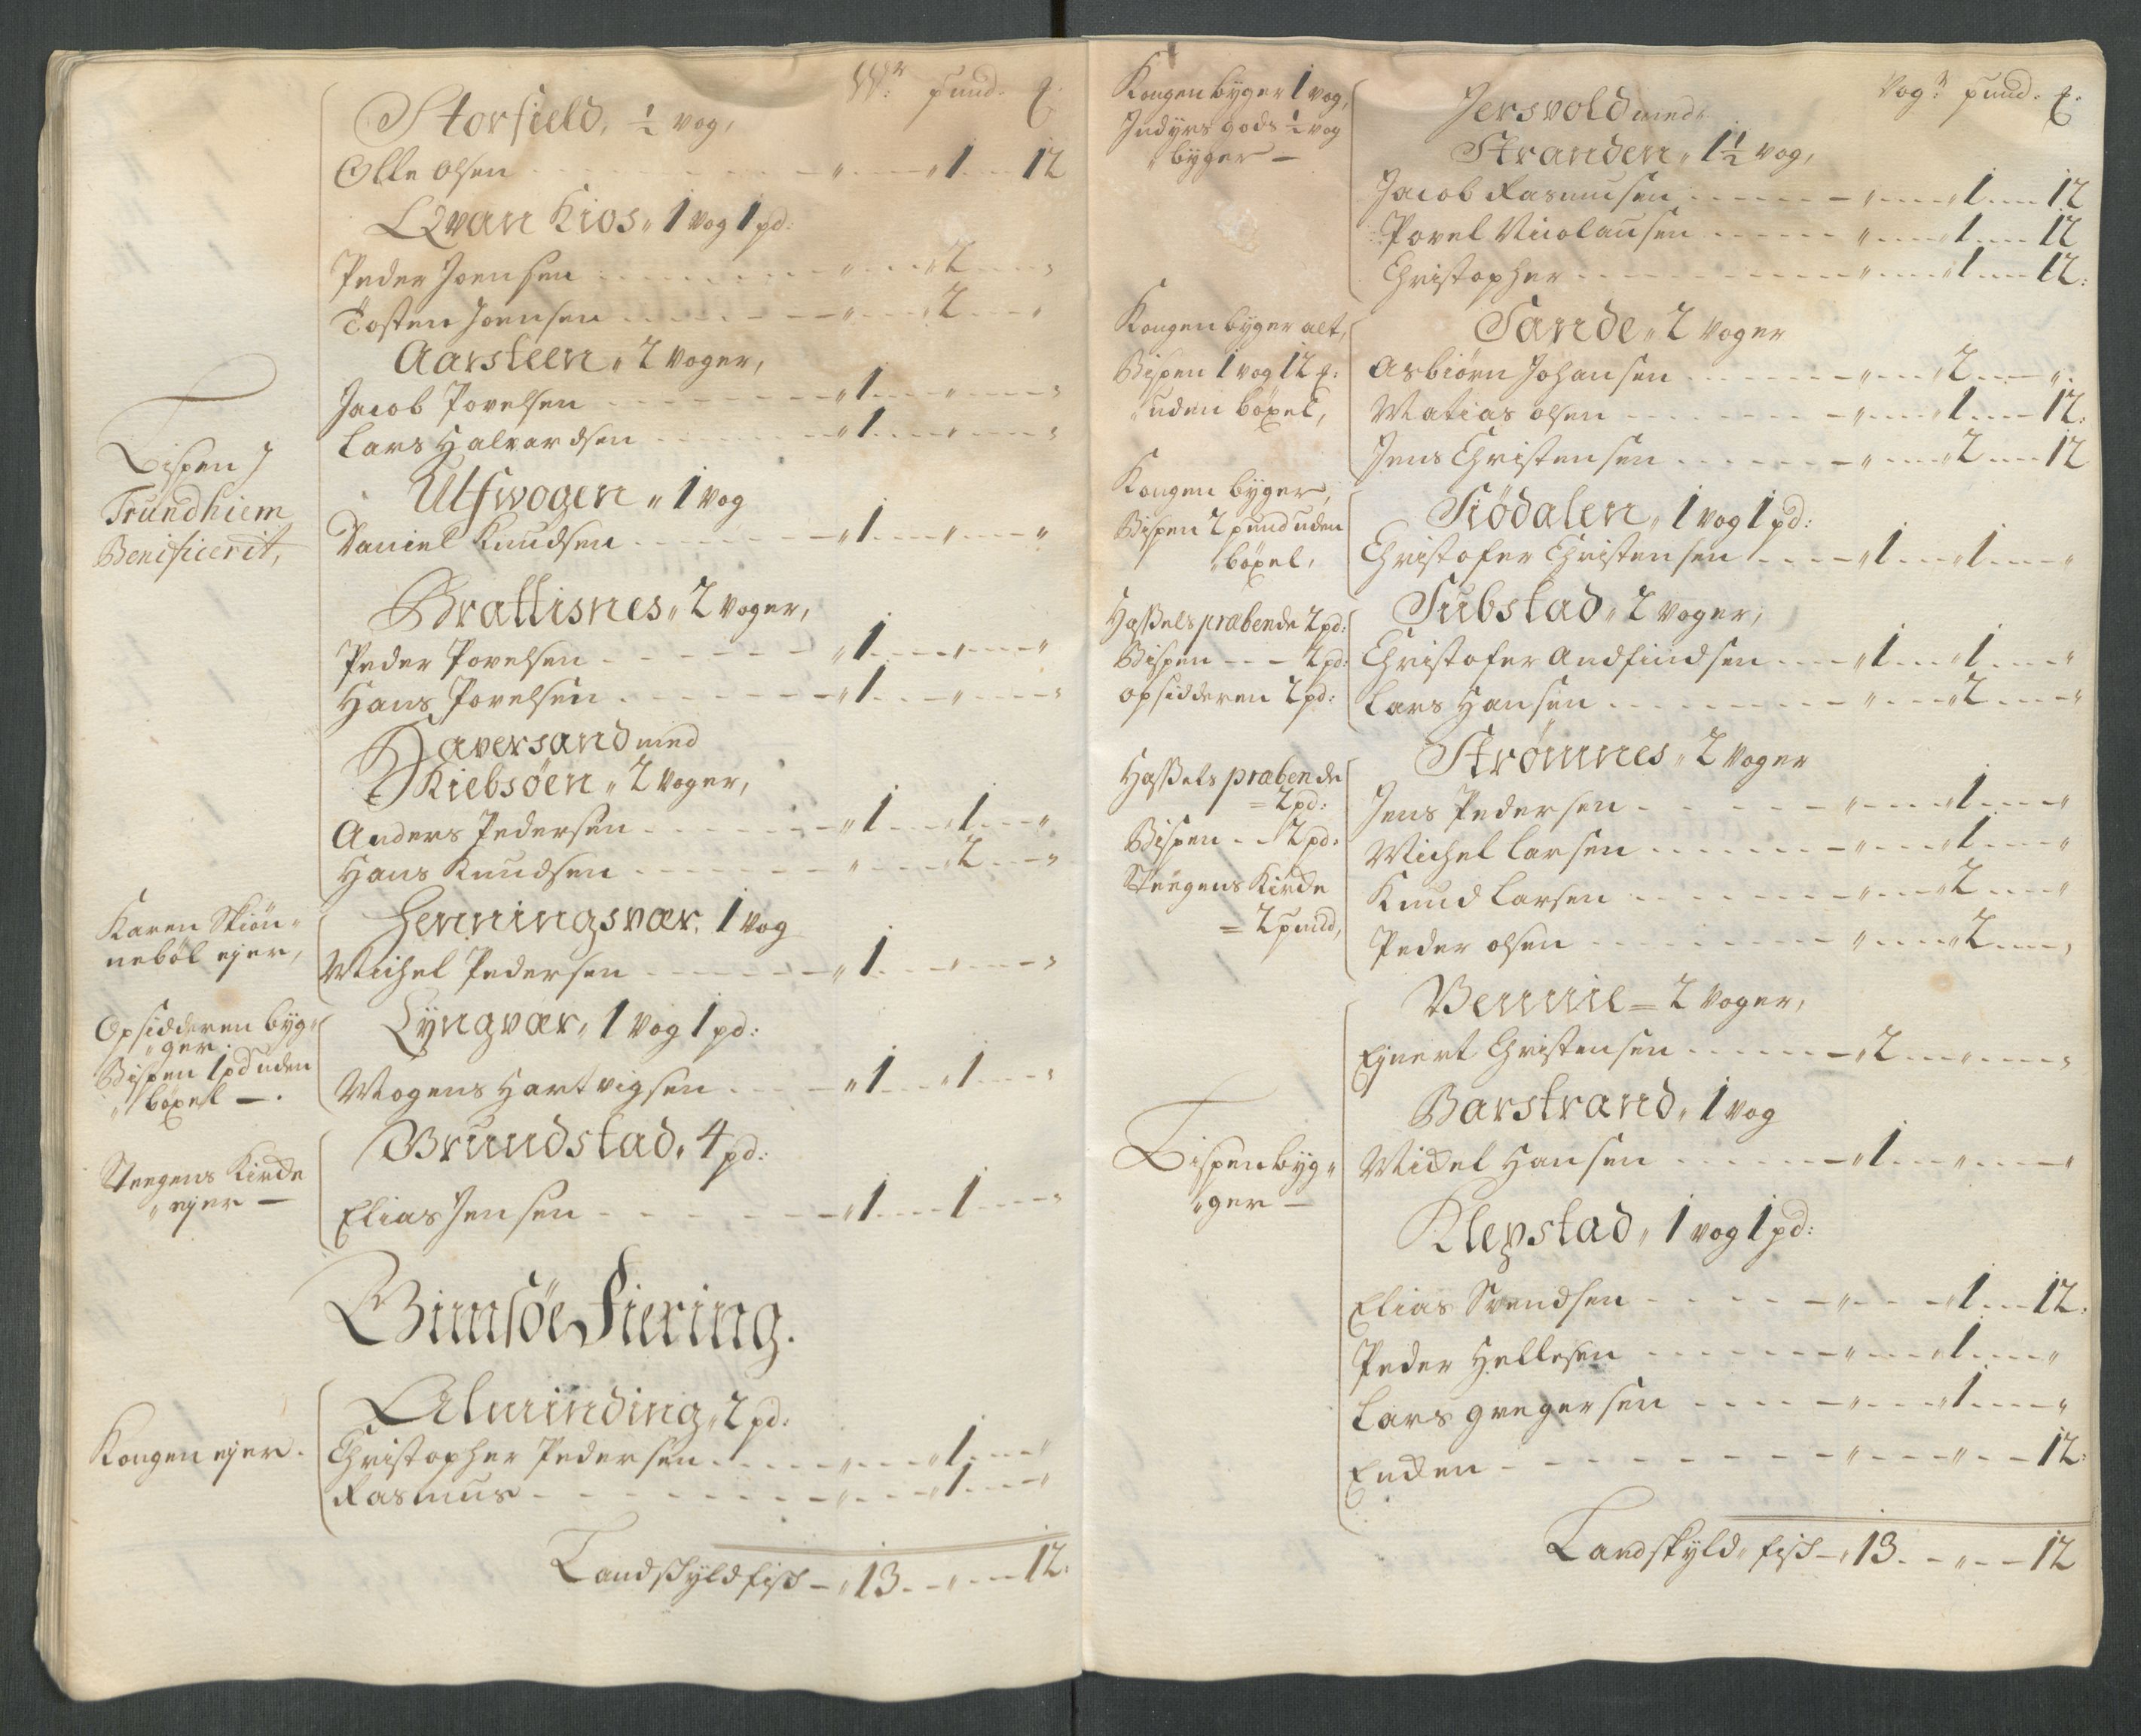 Wr: pund. ℔
Storfield, ½ vog,
Olle Olsen - - - „ - - „ 1 - - 12
Qvan Kios, 1 vog 1 pd:
Peder Joensen - - - „ - - „ 2 - - „
Tosten Joensen - - - „ - - „ 2 - - „
Aarsteen „ 2 voger,
Jacob Povelsen - - - „ 1 - - „ - - „
Lars Halvardsen - - - „ 1 - - „ - - „
Bispen J
Trundhiem
Benificerit,
Ulfwogen „ 1 vog
Daniel Knudsen - - - „ 1 - - „ - - „
Brattisnes „ 2 voger,
Peder Povelsen - - - „ 1 - - „ - - „
Hans Povelsen - - - „ 1 - - „ - - „
Haversand med
Kiebsöen „ 2 voger,
Anders Pedersen - - - „ 1 - - „ 1 - - „
Hans Knudsen - - - „ - - „ 2 - - „
Karen Skiön„
neböl ejer,
Henningsvær. 1 vog
Michel Pedersen - - - „ 1 - - „ - - „
Opsidderen byg„
„ger.
Bispen 1 pd uden
„böxel —.
Lyngvær „ 1 vog 1 pd:
Mogens Hartvigsen - - - „ 1 - - „ 1 - - „
Steegens Kircke
„ejer —
Brundstad, 4 pd:
Elias Jensen - - - „ 1 - - 1 - - „
Gimsöe Fiering.
Kongen ejer.
Alminding „ 2 pd:
Christopher Pedersen - - - „ - - „ 1 - - „
Rasmus - - - „ - - „ 1 - - „
Landskyld fisk - „ 13 - - „ - - 12.
Vogr: pund. ℔.
Kongen byger 1 vog,
Indyrs gods ½ vog
„byger —
Jersvold med
Stranden „ 1½ vog,
Jacob Rasmusen - - - „ - - „ 1 - - 12
Povel Nicolausen - - - „ - - „ 1 - - 12
Christopher - - - „ - - „ 1 - - 12:
Kongen byger alt,
Bispen 1 vog 12 ℔:
„uden böxel,
Sande „ 2 voger
Asbiörn Johansen - - - „ - - „ 2 - - „.
Matias olsen - - - „ - - „ 1 - - 12:
Jens Christensen - - - „ - - „ 2 - - 12
Kongen byger,
Bispen 2 pund uden
„böxel,
Siödalen, 1 vog 1 pd:
Christofer Christensen - - - „ 1 - - „ 1 - - „
Haßels præbende 2 pd:
Bispen - - - 2 pd:
opsidderen 2 pd:
Substad „ 2 voger,
Christofer Andfindsen - - - „ 1 - - „ 1 - - „
Lars Hansen - - - „ - - „ 2 - - „
Haßels præbende
= 2 pd:
Bispen - - 2 pd:
Steegens Kircke
= 2 pund,
Strömnes „ 2 voger
Jens Pedersen - - - „ - - „ 1 - - „
Michel larsen - - - „ - - „ 1 - - „
Knud larsen - - - „ - - „ 2 - - „
Peder olsen - - - „ - - „ 2 - - „
Vennie = 2 voger,
Ejnert Christensen - - - „ 2 - - „ - - „
Barstrand, 1 vog
Mickel Hansen - - - „ 1 - - „ - - „
Bispen byg„
„ger —
Klepstad „ 1 vog 1 pd:
Elias Svendsen - - - „ - - „ 1 - - 12:
Peder Hellesen - - - „ - - „ 1 - - „
Lars gregersen - - - „ - - „ 1 - - „
Encken - - - „ - - „ - - 12:
Landskyld„ fisk - „ 13 - - „ - - 12